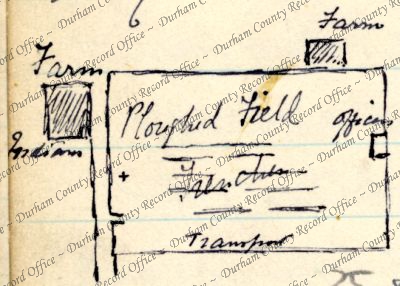 Farm
Farm
Ploughed Field
officers
Indians
Trenches
Transport
Durham County Record Office ~ Durham County Record Office ~ Durham County Record Office